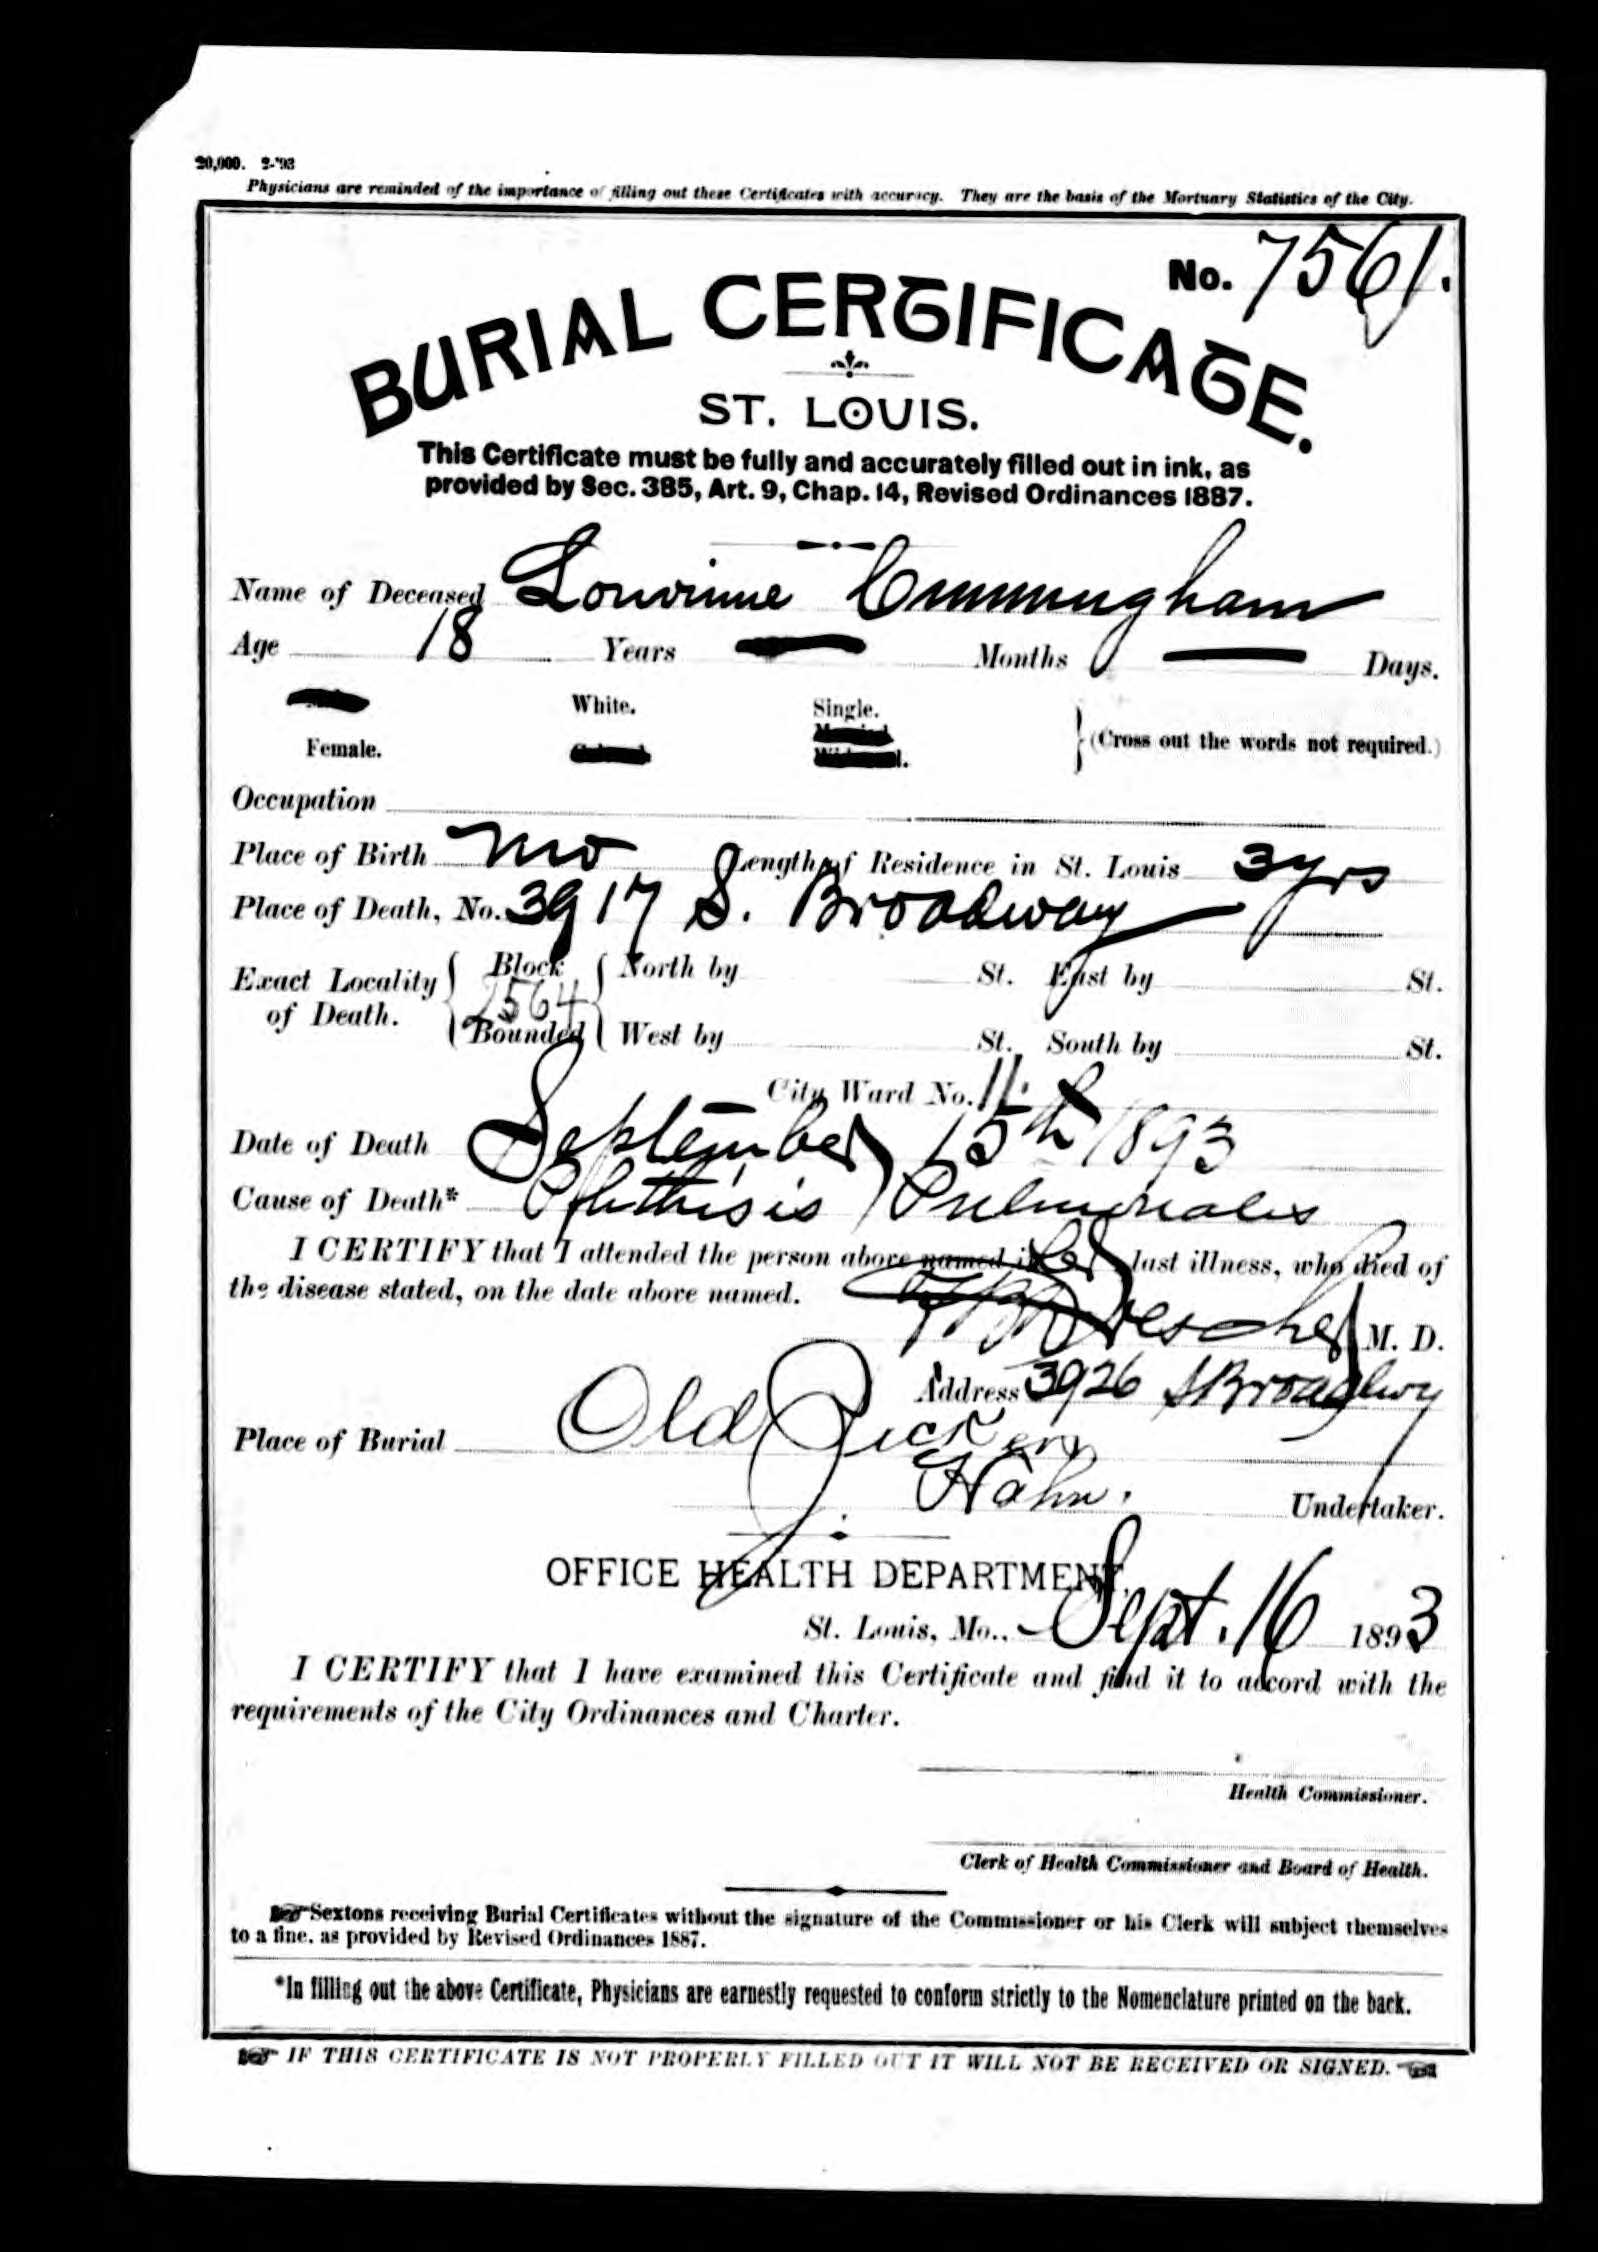 20,000. 2-'93
Physicians are reminded of the importance of filling out these Certificates with accuracy. They are the basis of the Mortuary Statistics of the City.
No. 7561.
BURIAL CERTIFICATE.
ST. LOUIS.
This Certificate must be fully and accurately filled out in ink, as
provided by Sec. 385, Art. 9, Chap. 14, Revised Ordinances 1887.
Name of Deceased Louvinne Cunningham
Age 18 Years Months Days.
White. Single.
(Cross out the words not required.)
Female.
Occupation
Place of Birth Mo Length of Residence in St. Louis 3 yrs
Place of Death, No. 3917 S. Broadway
Exact Locality of Death. Block 2564 Bounded North by St. East by St.
West by St. South by St.
City Ward No. 11.
Date of Death September 15th 1893
Cause of Death* Phthisis Pulmonales
I CERTIFY that I attended the person above named in her last illness, who died of
the disease stated, on the date above named.
Drescher M. D.
Address 3926 S Broadway
Place of Burial Old Pickers
Hahn. Undertaker.
OFFICE HEALTH DEPARTMENT,
St. Louis, Mo., Sept. 16 1893
I CERTIFY that I have examined this Certificate and find it to accord with the
requirements of the City Ordinances and Charter.
Health Commissioner.
Clerk of Health Commissioner and Board of Health.
Sextons receiving Burial Certificates without the signature of the Commissioner or his Clerk will subject themselves
to a fine, as provided by Revised Ordinances 1887.
*In filling out the above Certificate, Physicians are earnestly requested to conform strictly to the Nomenclature printed on the back.
IF THIS CERTIFICATE IS NOT PROPERLY FILLED OUT IT WILL NOT BE RECEIVED OR SIGNED.